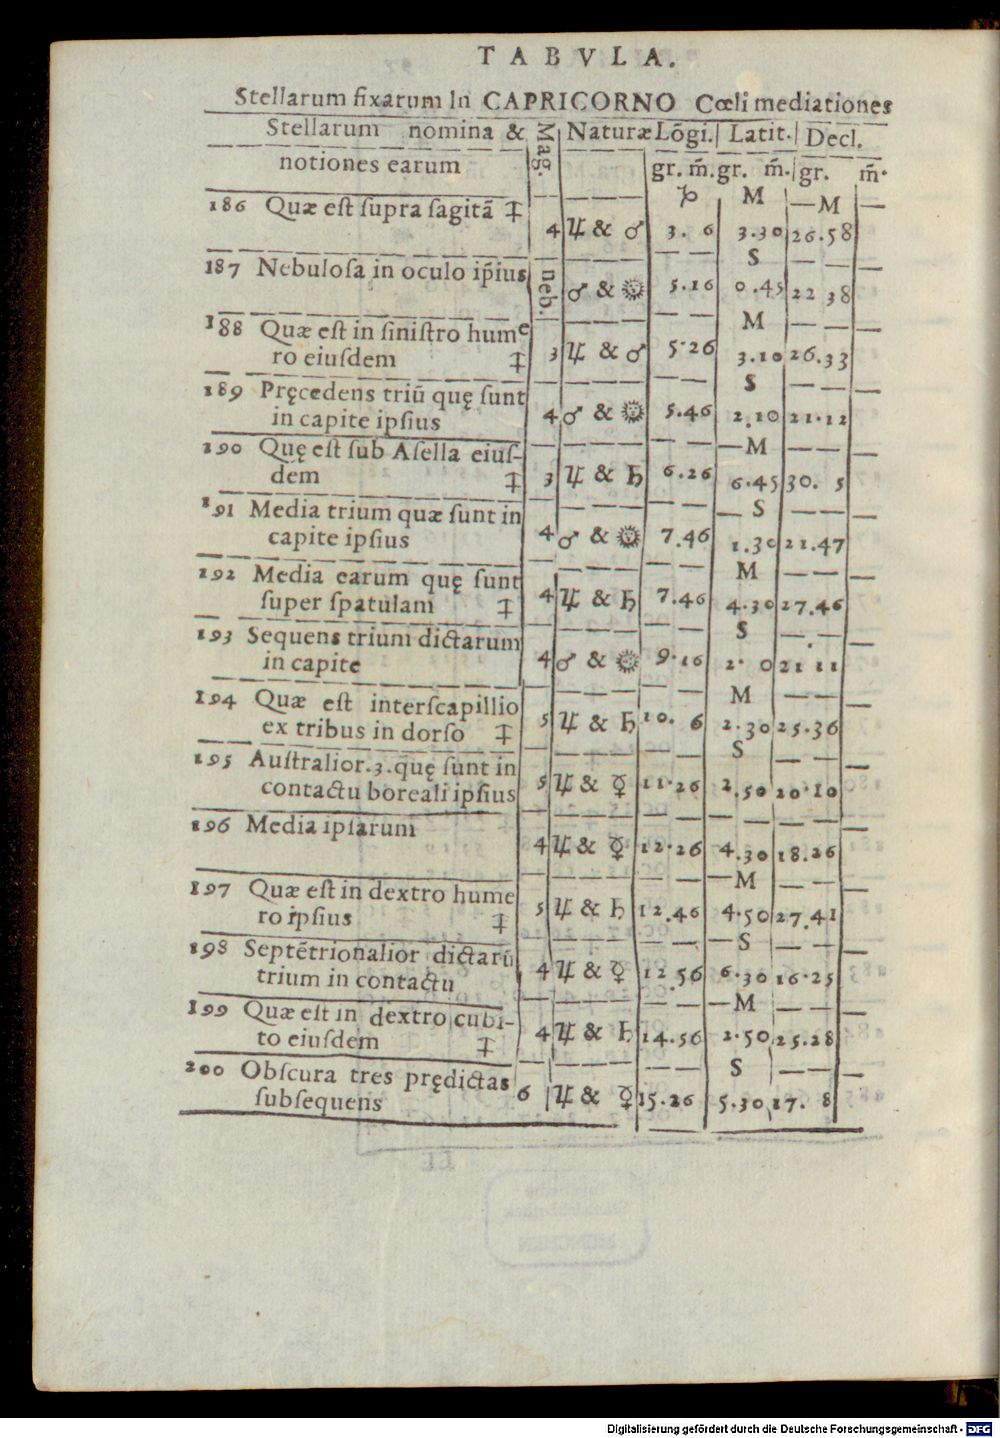 TABVLA.
Stellarum fixarum In CAPRICORNO Cœli mediationes
Stellarum nomina & Mag. Naturæ Lōgi. Latit. Decl.
notiones earum gr. m̃. gr. m̃. gr. m̃.
♑ M M
186 Quæ est supra sagitā ♐
4 ♃ & ♂ 3. 6 3.30 26.58
S
187 Nebulosa in oculo ip̄ius neb. ♂ & ☉ 5.16 0.45 22 38
M
188 Quæ est in sinistro hume
ro eiusdem ♐ 3 ♃ & ♂ 5.26 3.10 26.33
S
189 Pręcedens triū quę sunt
in capite ipsius 4 ♂ & ☉ 5.46 2.10 21.12
M
190 Quę est sub Asella eius-
dem ♐ 3 ♃ & ♄ 6.26 6.45 30. 5
S
191 Media trium quæ sunt in
capite ipsius 4 ♂ & ☉ 7.46 1.30 21.47
M
192 Media earum quę sunt
super spatulam ♐ 4 ♃ & ♄ 7.46 4.30 27.46
S
193 Sequens trium dictarum
in capite 4 ♂ & ☉ 9.16 2. 0 21 11
M
194 Quæ est interscapillio
ex tribus in dorso ♐ 5 ♃ & ♄ 10. 6 2.30 25.36
S
195 Australior.3.quę sunt in
contactu boreali ipsius 5 ♃ & ☿ 11.26 2.50 20.10
196 Media ipsarum
4 ♃ & ☿ 12.26 4.30 18.26
M
197 Quæ est in dextro hume
ro ipsius ♐ 5 ♃ & ♄ 12.46 4.50 27.41
S
198 Septētrionalior dictarū
trium in contactu 4 ♃ & ☿ 12.56 6.30 16.25
M
199 Quæ est in dextro cubi-
to eiusdem ♐ 4 ♃ & ♄ 14.56 2.50 25.28
S
200 Obscura tres prędictas
subsequens 6 ♃ & ☿ 15.26 5.30 17. 8
Digitalisierung gefördert durch die Deutsche Forschungsgemeinschaft - DFG